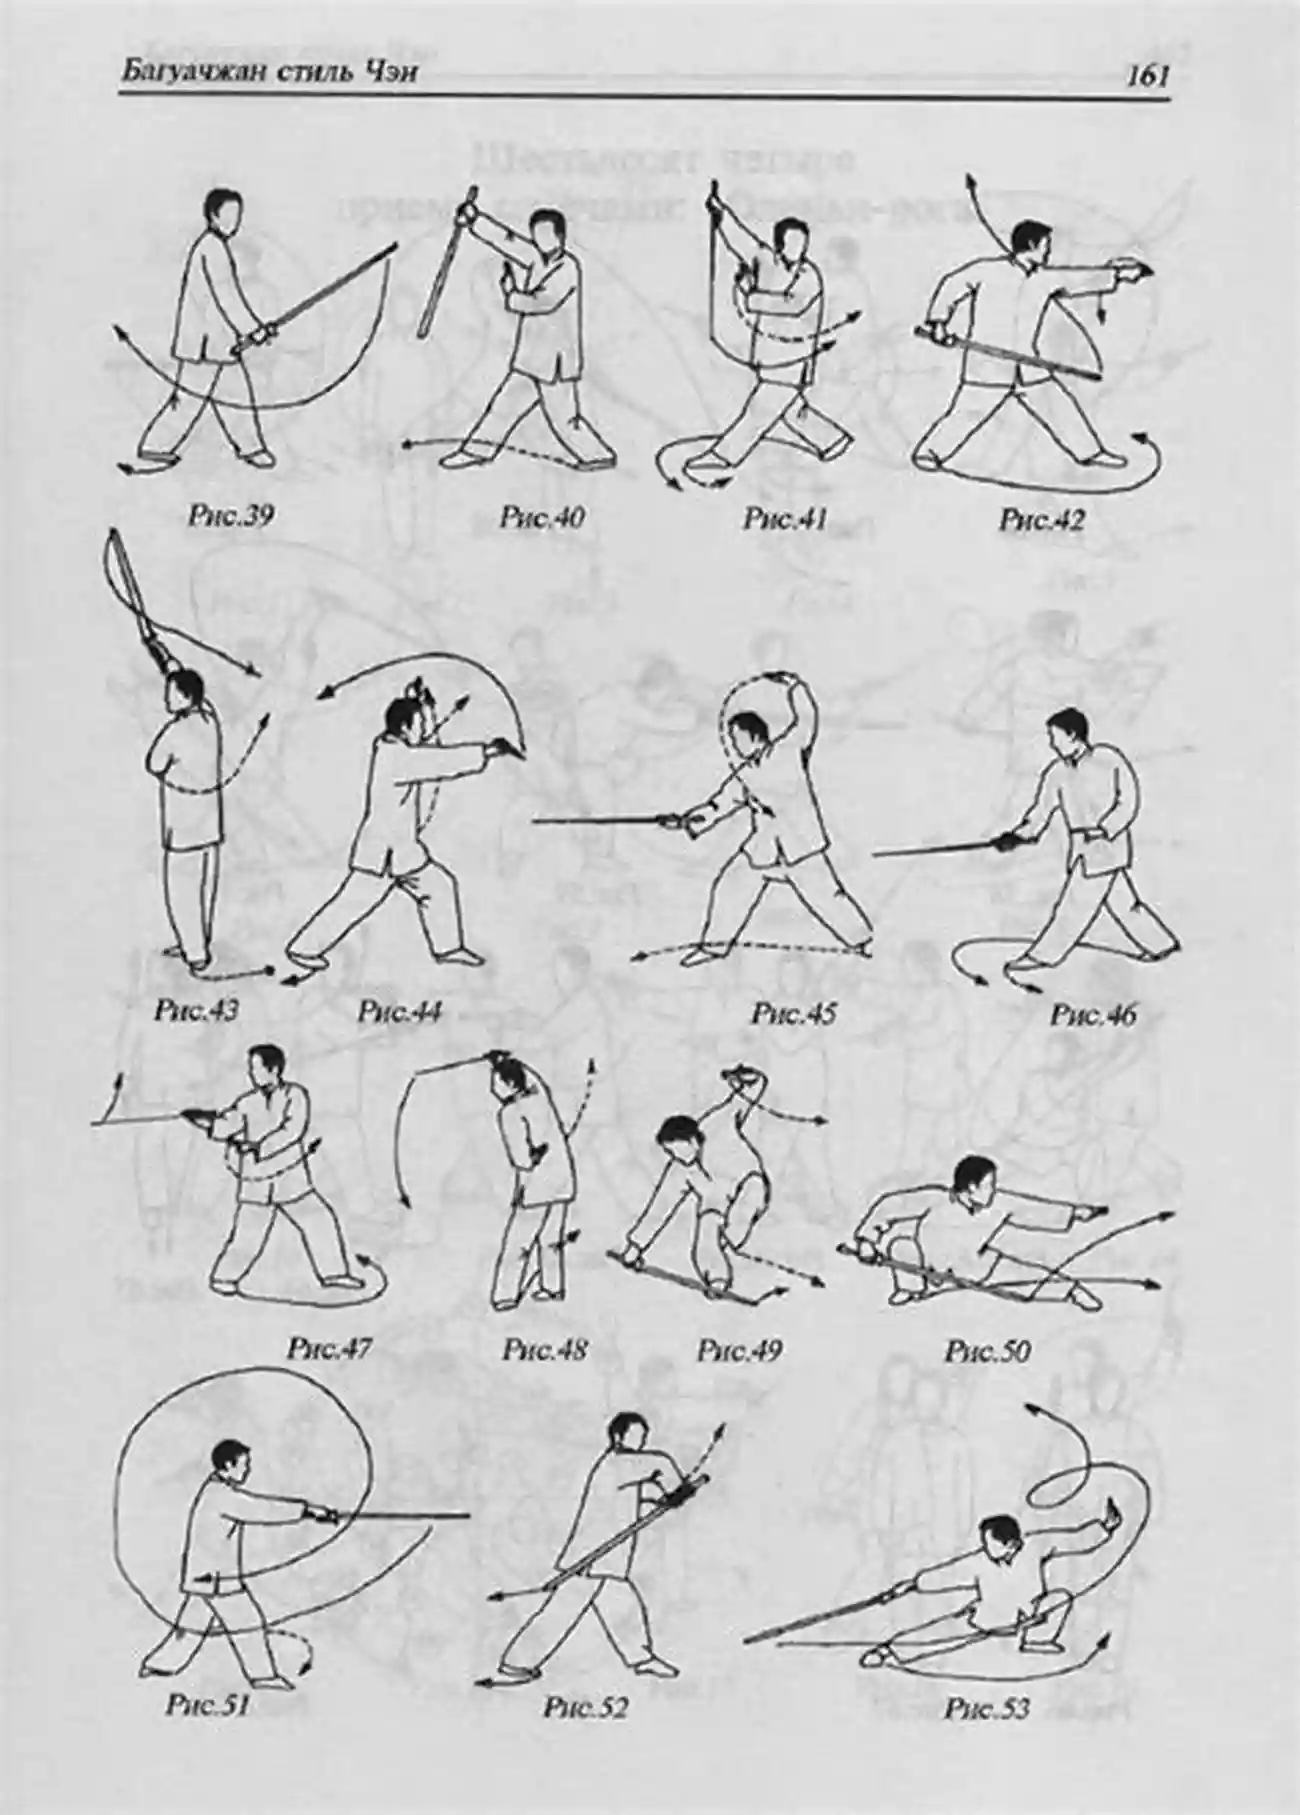 Багуачжан стиль Чэн 161
Рис.39 Рис.40 Рис.41 Рис.42
Рис.43 Рис.44 Рис.45 Рис.46
Рис.47 Рис.48 Рис.49 Рис.50
Рис.51 Рис.52 Рис.53